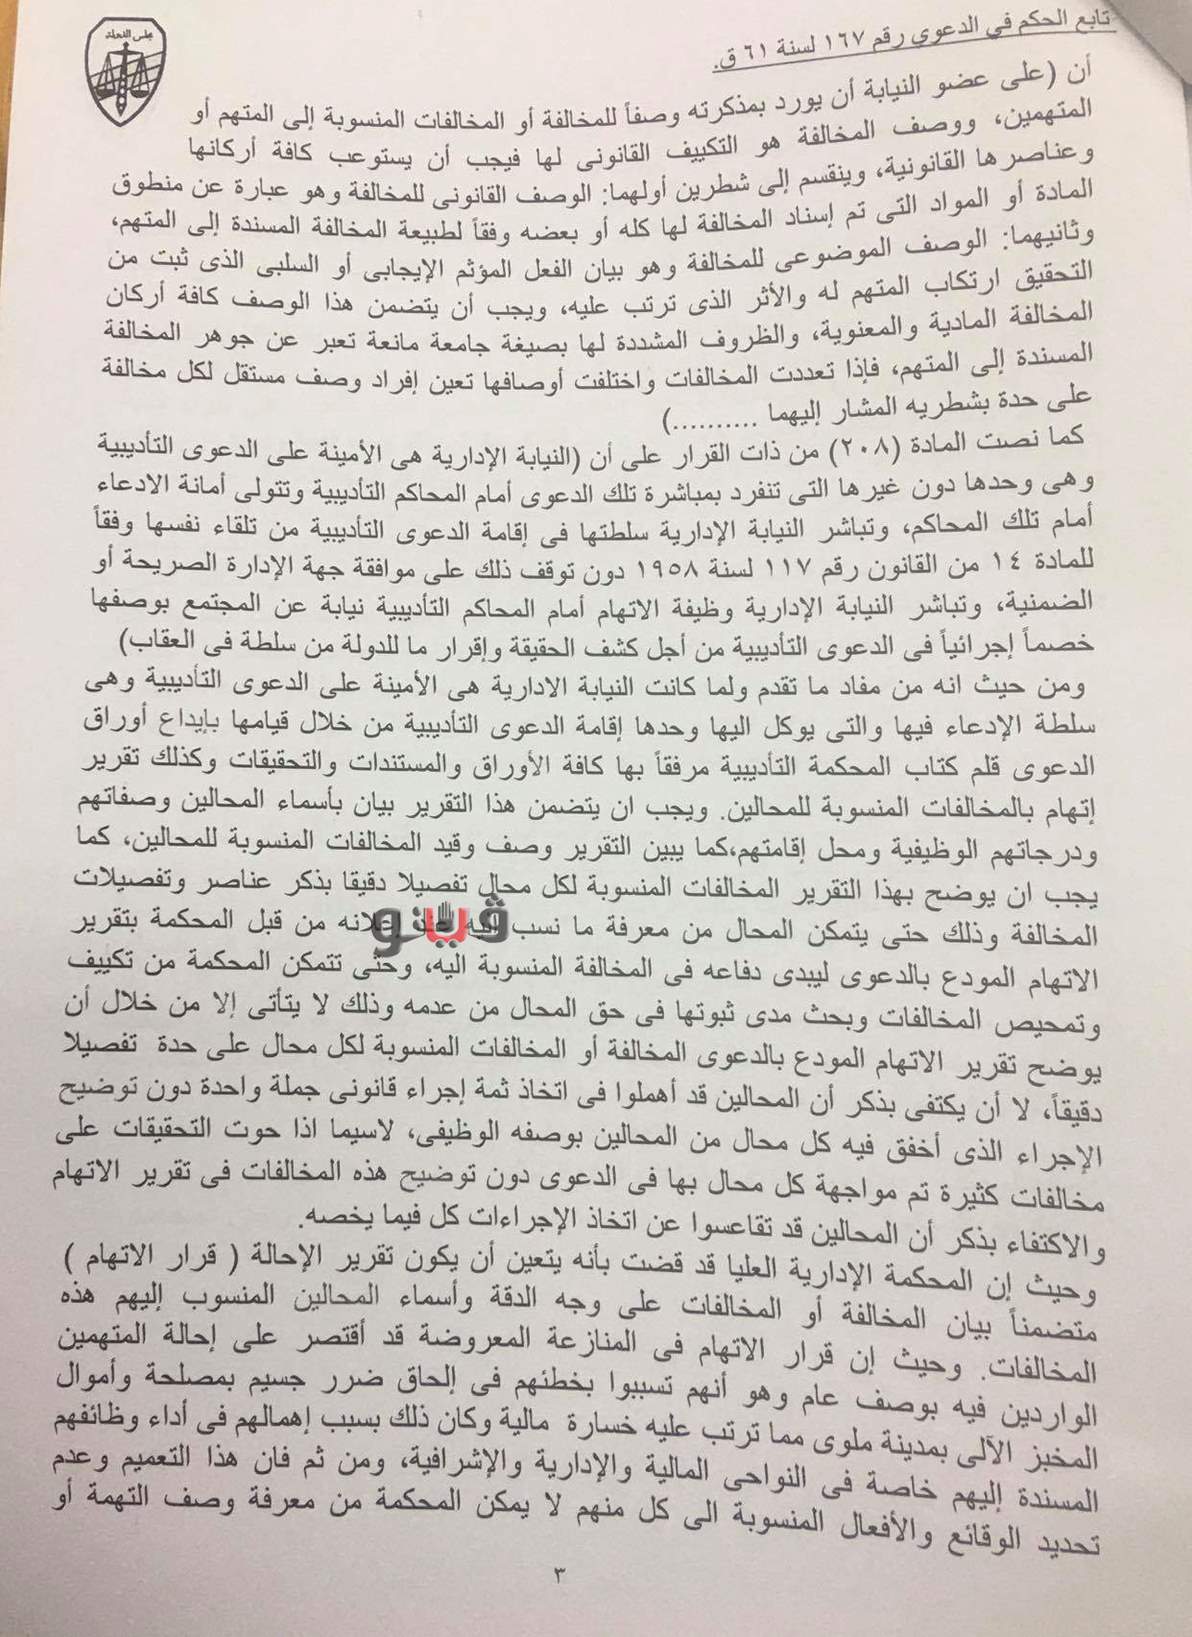 مجلس الدولة
تابع الحكم في الدعوى رقم ١٦٧ لسنة ٦١ ق.
أن (على عضو النيابة أن يورد بمذكرته وصفاً للمخالفة أو المخالفات المنسوبة إلى المتهم أو
المتهمين، ووصف المخالفة هو التكييف القانونى لها فيجب أن يستوعب كافة أركانها
وعناصرها القانونية، وينقسم إلى شطرين أولهما: الوصف القانونى للمخالفة وهو عبارة عن منطوق
المادة أو المواد التى تم إسناد المخالفة لها كله أو بعضه وفقاً لطبيعة المخالفة المسندة إلى المتهم،
وثانيهما: الوصف الموضوعى للمخالفة وهو بيان الفعل المؤثم الإيجابى أو السلبى الذى ثبت من
التحقيق ارتكاب المتهم له والأثر الذى ترتب عليه، ويجب أن يتضمن هذا الوصف كافة أركان
المخالفة المادية والمعنوية، والظروف المشددة لها بصيغة جامعة مانعة تعبر عن جوهر المخالفة
المسندة إلى المتهم، فإذا تعددت المخالفات واختلفت أوصافها تعين إفراد وصف مستقل لكل مخالفة
على حدة بشطريه المشار إليهما ..........)
كما نصت المادة (٢٠٨) من ذات القرار على أن (النيابة الإدارية هى الأمينة على الدعوى التأديبية
وهى وحدها دون غيرها التى تنفرد بمباشرة تلك الدعوى أمام المحاكم التأديبية وتتولى أمانة الادعاء
أمام تلك المحاكم، وتباشر النيابة الإدارية سلطتها فى إقامة الدعوى التأديبية من تلقاء نفسها وفقاً
للمادة ١٤ من القانون رقم ١١٧ لسنة ١٩٥٨ دون توقف ذلك على موافقة جهة الإدارة الصريحة أو
الضمنية، وتباشر النيابة الإدارية وظيفة الاتهام أمام المحاكم التأديبية نيابة عن المجتمع بوصفها
خصماً إجرائياً فى الدعوى التأديبية من أجل كشف الحقيقة وإقرار ما للدولة من سلطة فى العقاب)
ومن حيث انه من مفاد ما تقدم ولما كانت النيابة الادارية هى الأمينة على الدعوى التأديبية وهى
سلطة الإدعاء فيها والتى يوكل اليها وحدها إقامة الدعوى التأديبية من خلال قيامها بإيداع أوراق
الدعوى قلم كتاب المحكمة التأديبية مرفقاً بها كافة الأوراق والمستندات والتحقيقات وكذلك تقرير
إتهام بالمخالفات المنسوبة للمحالين. ويجب ان يتضمن هذا التقرير بيان بأسماء المحالين وصفاتهم
ودرجاتهم الوظيفية ومحل إقامتهم،كما يبين التقرير وصف وقيد المخالفات المنسوبة للمحالين، كما
يجب ان يوضح بهذا التقرير المخالفات المنسوبة لكل محال تفصيلا دقيقا بذكر عناصر وتفصيلات
المخالفة وذلك حتى يتمكن المحال من معرفة ما نسب إليه عند إعلانه من قبل المحكمة بتقرير
ڤيتو
الاتهام المودع بالدعوى ليبدى دفاعه فى المخالفة المنسوبة اليه، وحتى تتمكن المحكمة من تكييف
وتمحيص المخالفات وبحث مدى ثبوتها فى حق المحال من عدمه وذلك لا يتأتى إلا من خلال أن
يوضح تقرير الاتهام المودع بالدعوى المخالفة أو المخالفات المنسوبة لكل محال على حدة تفصيلا
دقيقاً، لا أن يكتفى بذكر أن المحالين قد أهملوا فى اتخاذ ثمة إجراء قانونى جملة واحدة دون توضيح
الإجراء الذى أخفق فيه كل محال من المحالين بوصفه الوظيفى، لاسيما اذا حوت التحقيقات على
مخالفات كثيرة تم مواجهة كل محال بها فى الدعوى دون توضيح هذه المخالفات فى تقرير الاتهام
والاكتفاء بذكر أن المحالين قد تقاعسوا عن اتخاذ الإجراءات كل فيما يخصه.
وحيث إن المحكمة الإدارية العليا قد قضت بأنه يتعين أن يكون تقرير الإحالة ( قرار الاتهام )
متضمناً بيان المخالفة أو المخالفات على وجه الدقة وأسماء المحالين المنسوب إليهم هذه
المخالفات. وحيث إن قرار الاتهام فى المنازعة المعروضة قد أقتصر على إحالة المتهمين
الواردين فيه بوصف عام وهو أنهم تسببوا بخطئهم فى إلحاق ضرر جسيم بمصلحة وأموال
المخبز الآلى بمدينة ملوى مما ترتب عليه خسارة مالية وكان ذلك بسبب إهمالهم فى أداء وظائفهم
المسندة إليهم خاصة فى النواحى المالية والإدارية والإشرافية، ومن ثم فان هذا التعميم وعدم
تحديد الوقائع والأفعال المنسوبة الى كل منهم لا يمكن المحكمة من معرفة وصف التهمة أو
٣